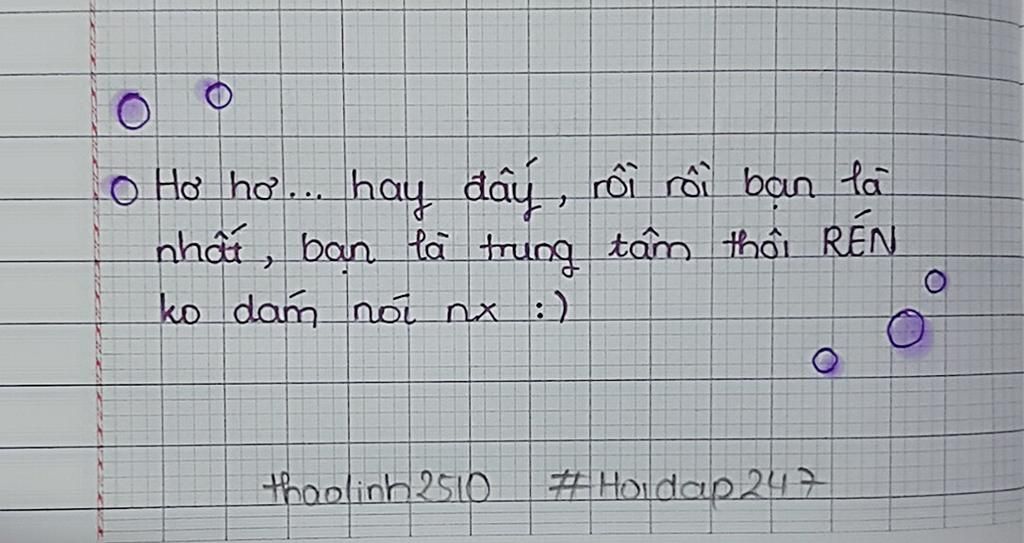 Hơ hơ... hay đấy, rồi rồi bạn là
nhất, bạn là trung tâm thôi RÉN
ko dám nói nx :)
thaolinh2510 #Hoidap247